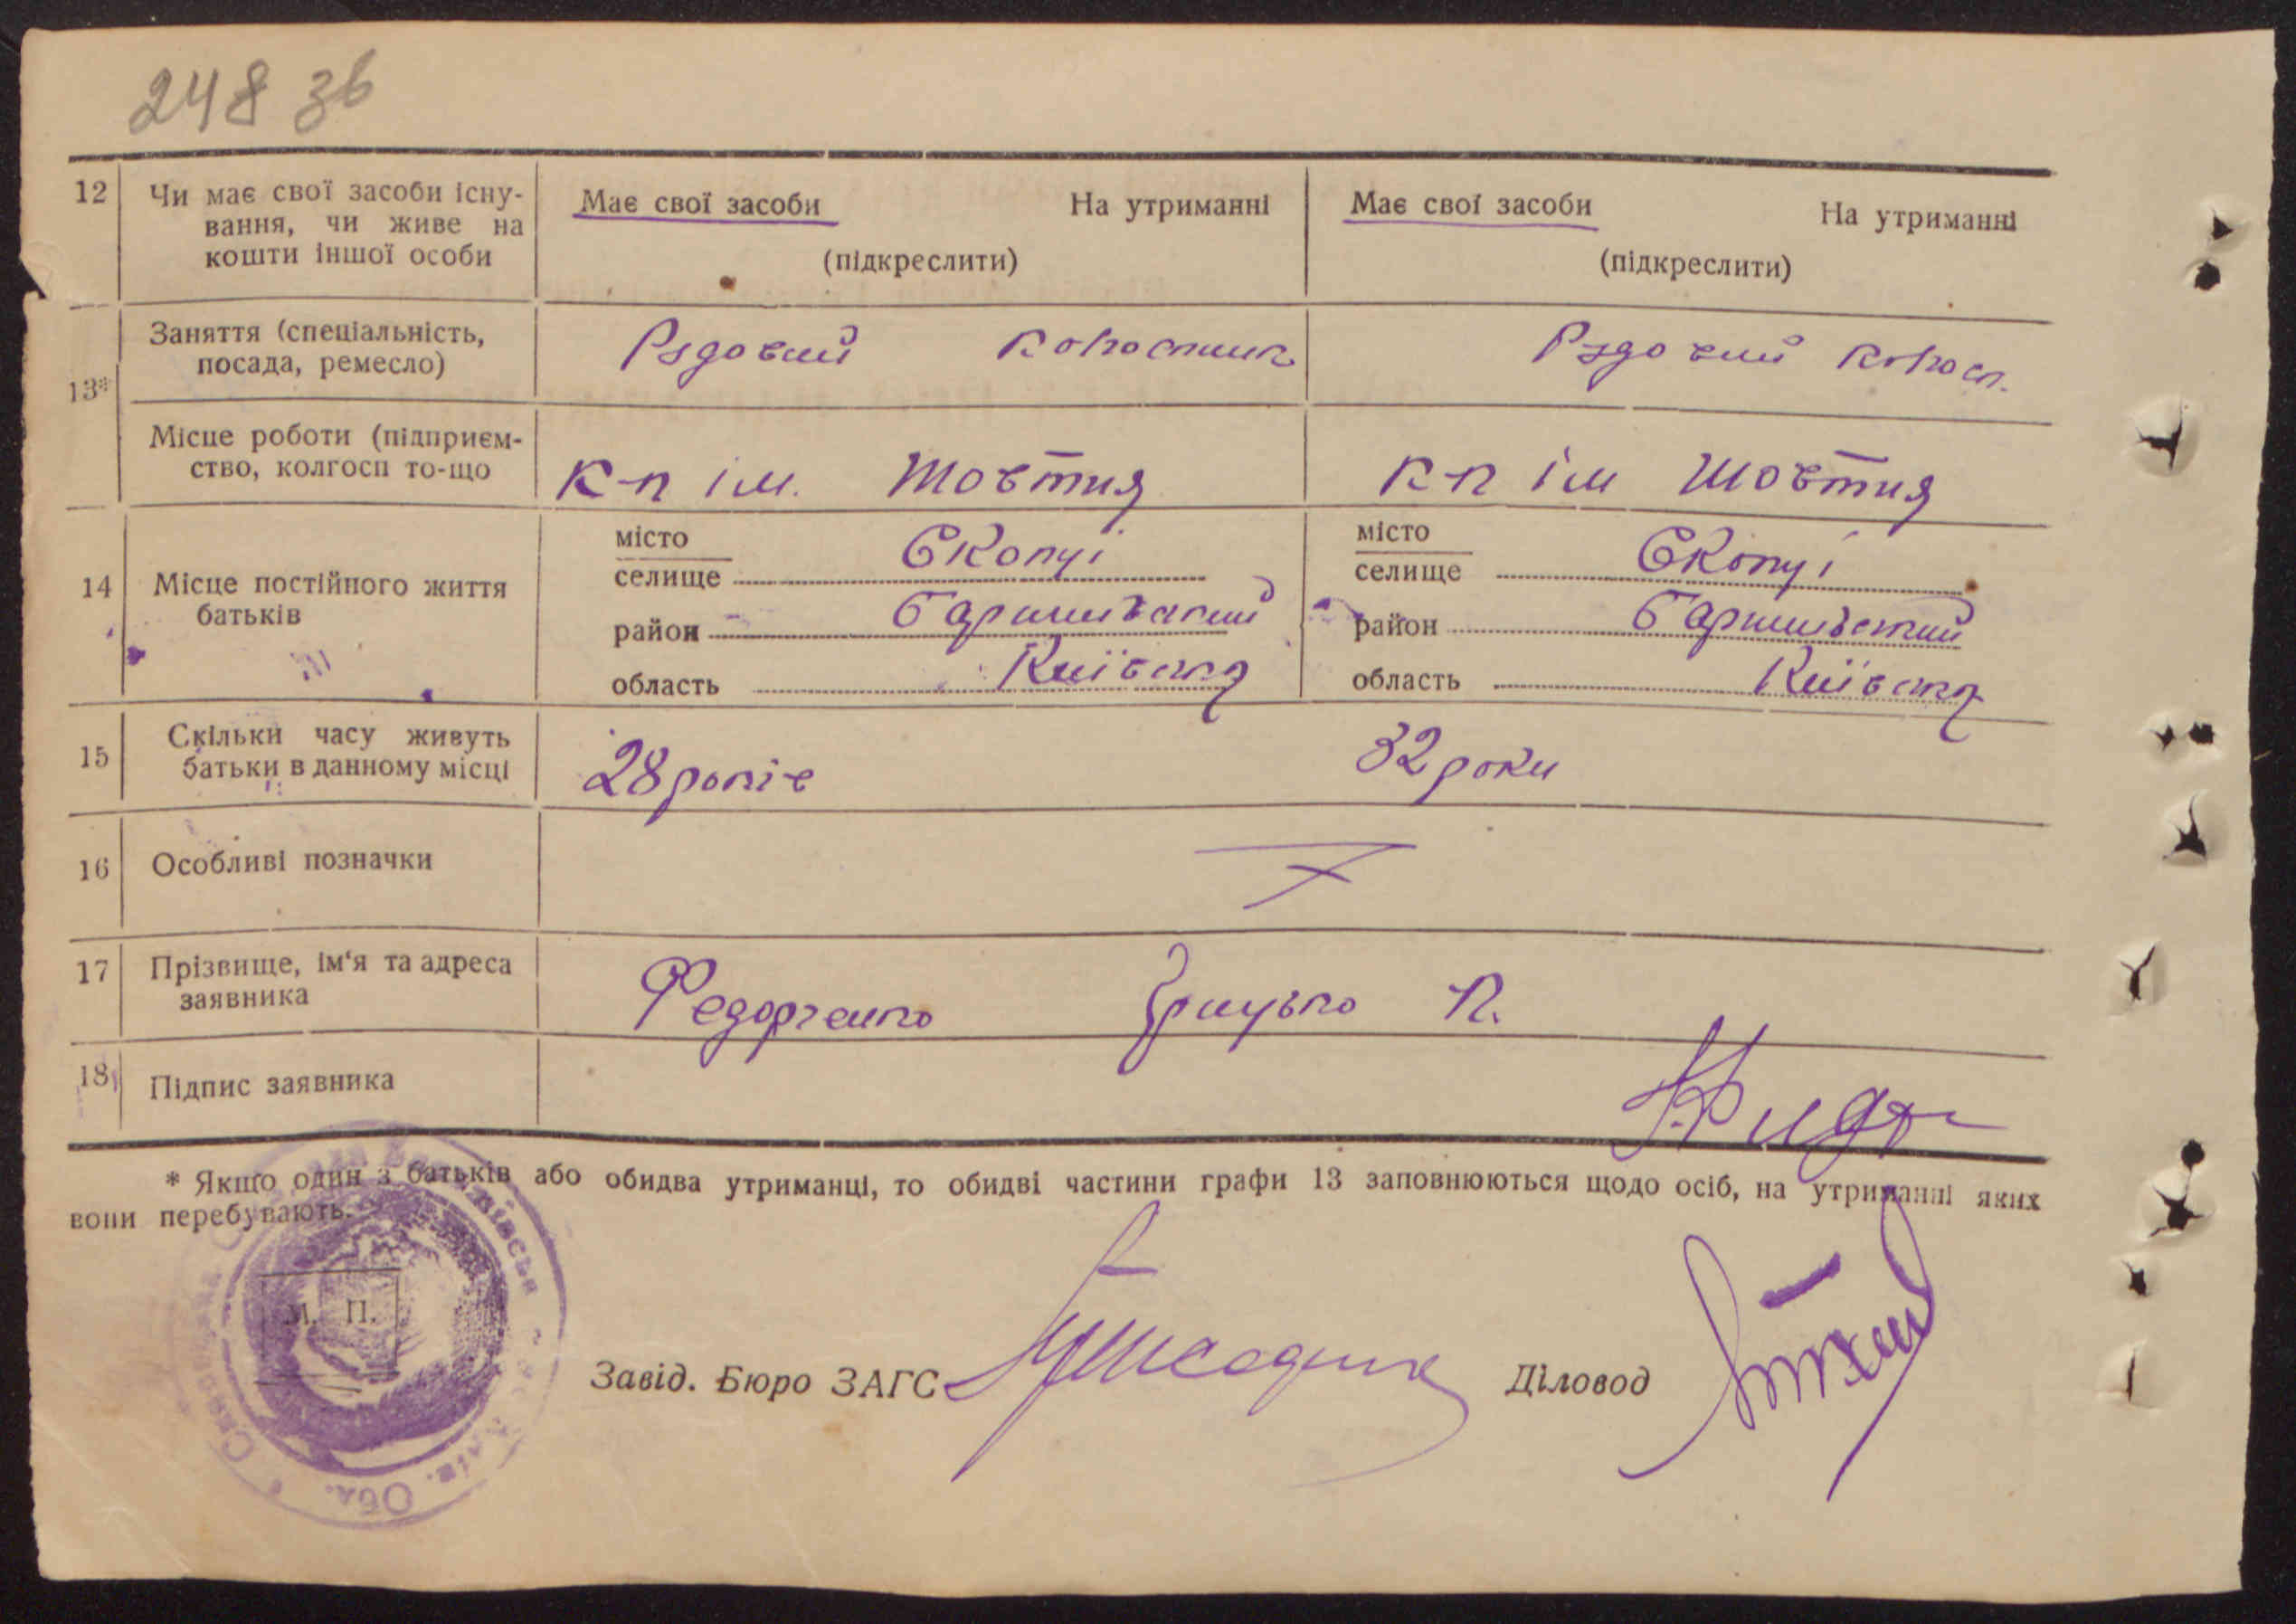 248 зв
12 Чи має свої засоби існу-
вання, чи живе на
кошти іншої особи
Має свої засоби На утриманні
(підкреслити)
Має свої засоби На утриманні
(підкреслити)
13*
Заняття (спеціальність,
посада, ремесло)
Рядовий
Рядовий
Місце роботи (підприєм-
ство, колгосп то-що
к-п ім. Жовтня
к-п ім Жовтня
14 Місце постійного життя
батьків
місто
селище Скопці
район Баришівський
область Київська
місто
селище Скопці
район Баришівський
область Київська
15 Скільки часу живуть
батьки в данному місці
28 років
32 роки
16 Особливі позначки
17 Прізвище, ім'я та адреса
заявника
Федорченко Грицько К.
18 Підпис заявника
* Якщо один з батьків або обидва утриманці, то обидві частини графи 13 заповнюються щодо осіб, на утриманні яких
вони перебувають.
М. П.
Завід. Бюро ЗАГС
Діловод